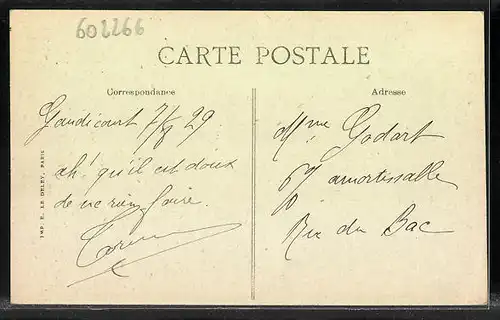 602266
CARTE POSTALE
Correspondance
Adresse
Gaudicourt 7/8 29
ah! qu'il est doux
de ne rien faire.
Mme Godart
rue du Bac
IMP. E. LE DELEY, PARIS